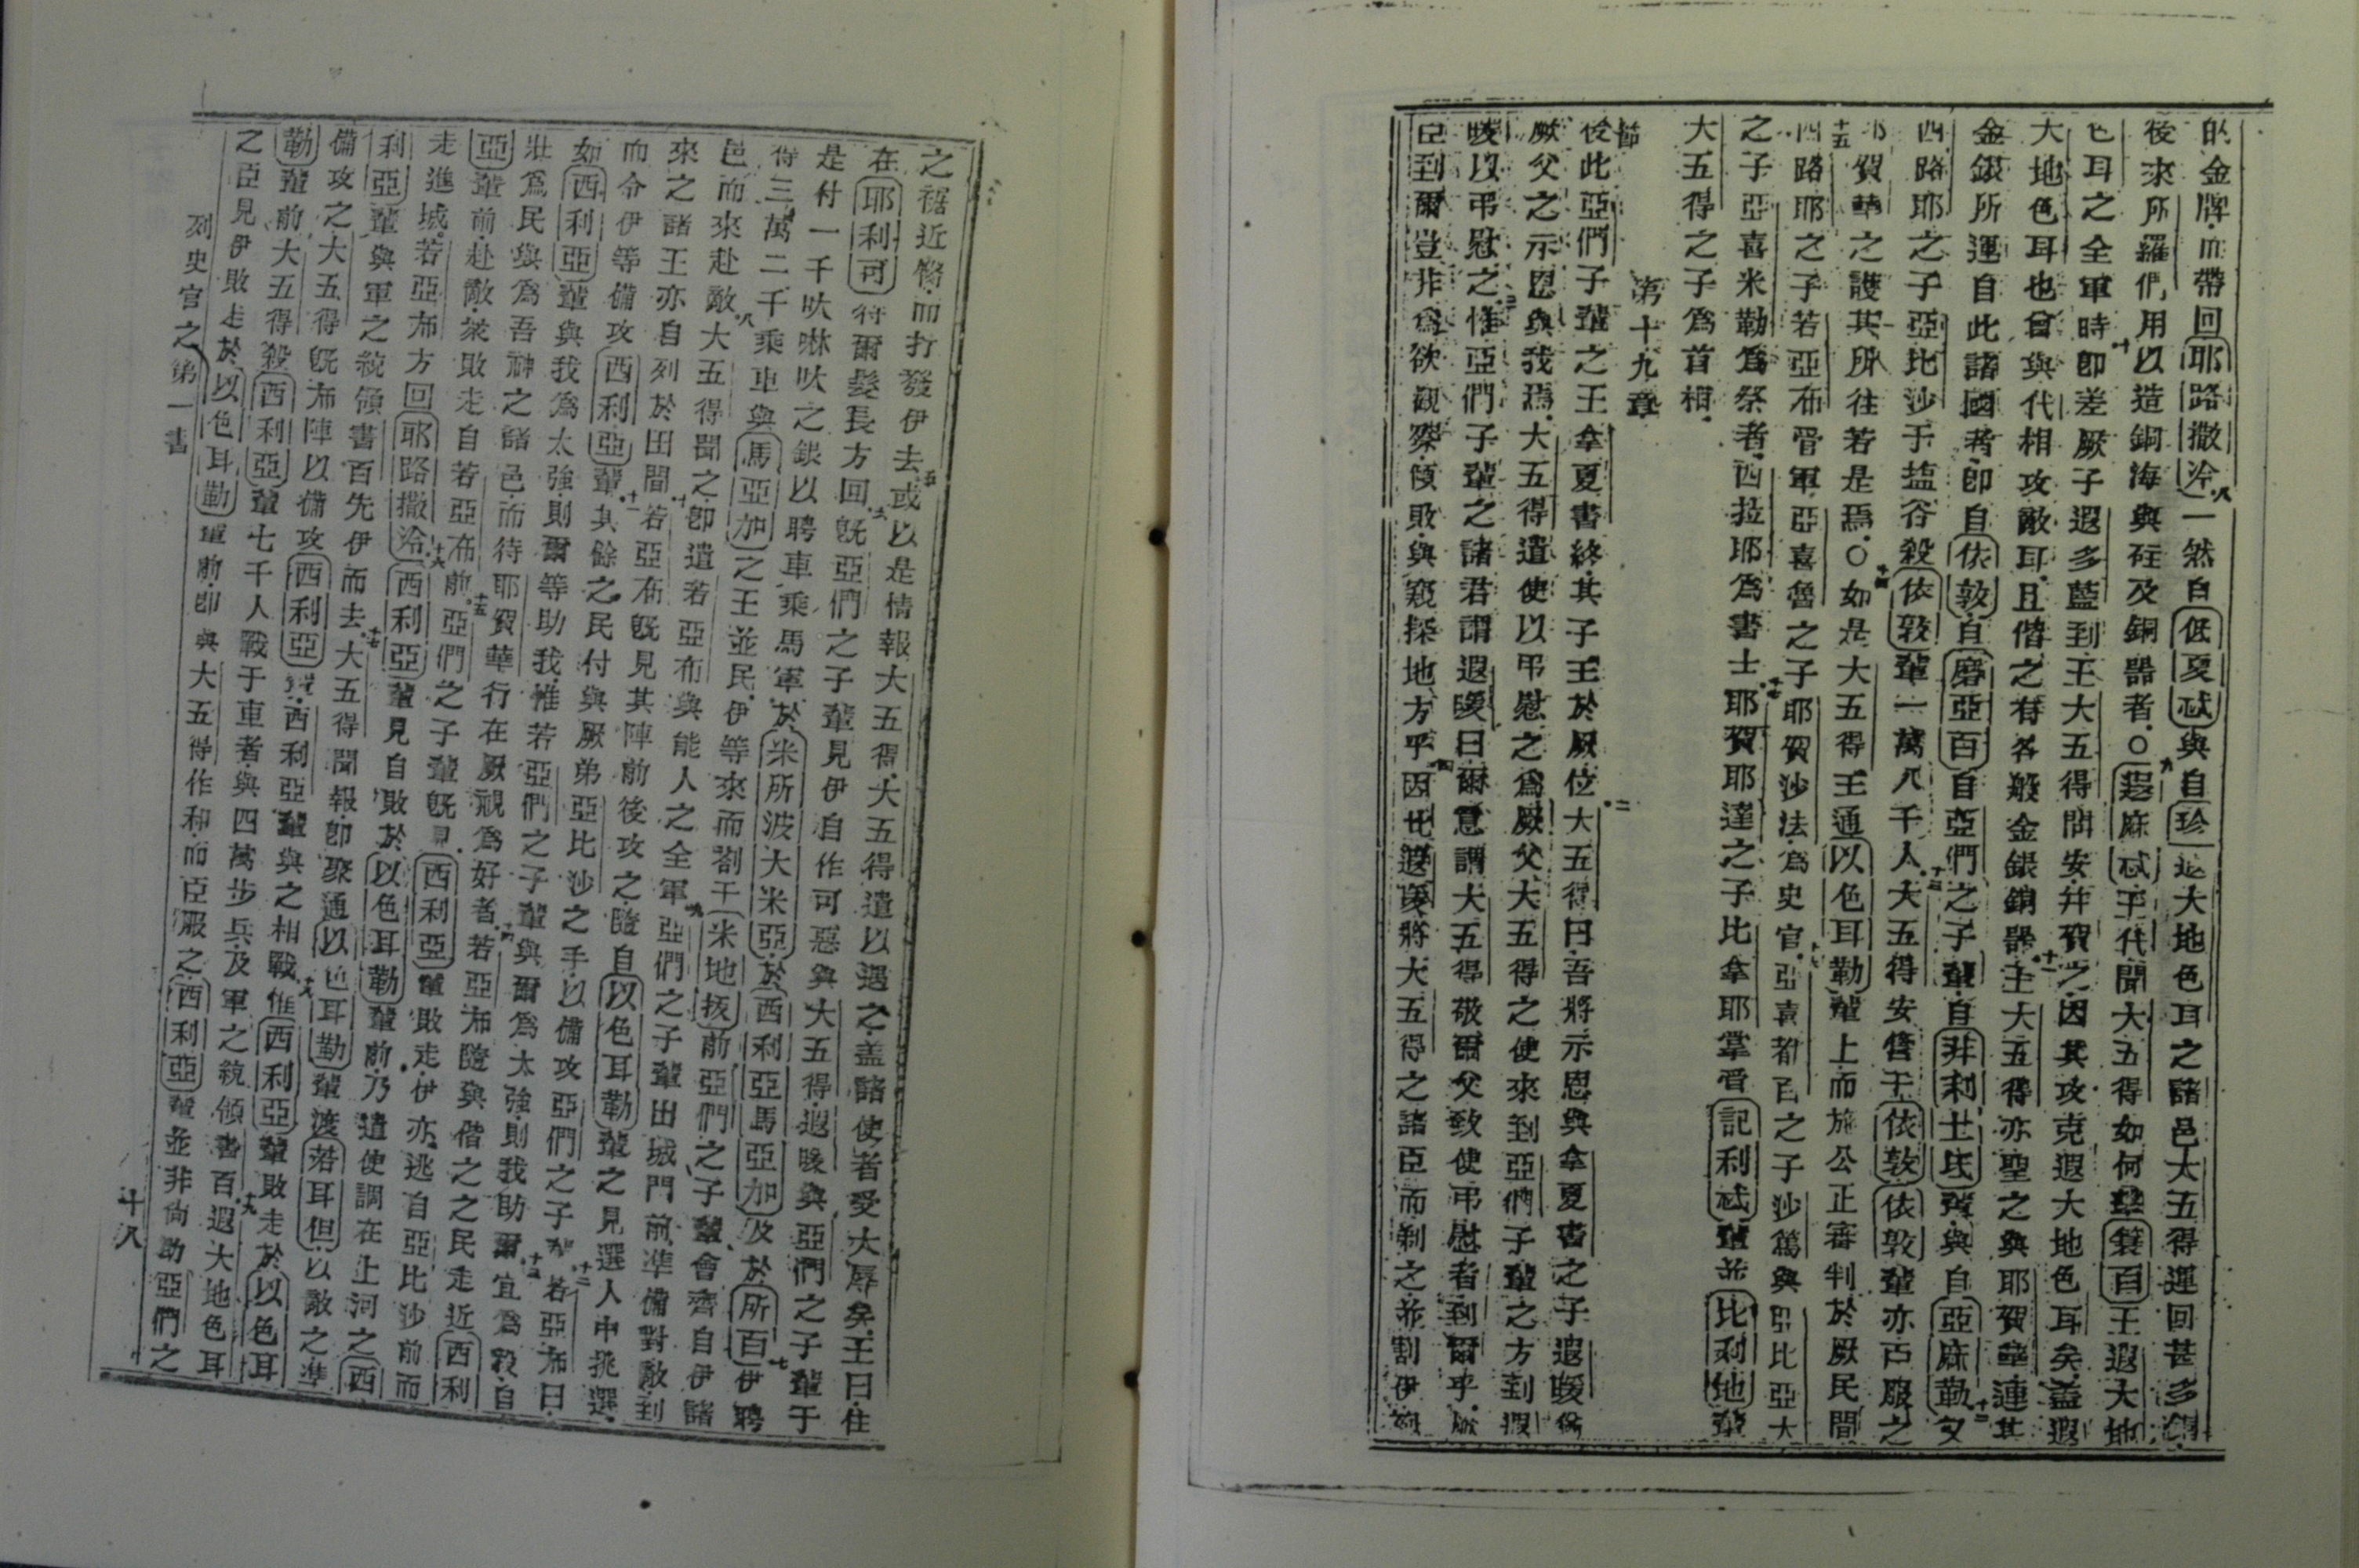 的金牌而帶回耶路撒冷八一然自低夏忒與自珍退大地色耳之諸邑大五得運回甚多銅
後來所羅們用以造銅海與砫及銅噐者○九遐麻忒王代聞大五得如何擊簑百王遐大地
色耳之全軍時十卽差厥子遐多藍到王大五得問安并賀之因其攻克遐大地色耳矣盖遐
大地色耳也曾與代相攻敵耳且偕之有各般金銀銅噐十一王大五得亦聖之與耶賀華連其
金銀所運自此諸國者卽自依敦自磨亞百自亞們之子輩自非利士氐輩與自亞麻勒十二又
西路耶之子亞比沙于塩谷殺依敦輩一萬八千人十三大五得安營于依敦依敦輩亦臣服之
耶賀華之護其所往若是焉○十四如是大五得王通以色耳勒輩上而施公正審判於厥民間
十五西路耶之子若亞布管軍亞喜魯之子耶賀沙法為史官十六亞喜都百之子沙篤與亞比亞大
之子亞喜米勒為祭者西拉耶為書士十七耶賀耶達之子比拿耶掌管記利忒輩並比利地輩
大五得之子為首相
第十九章
節
後此亞們子輩之王拿夏書終其子王於厥位二大五得曰吾將示恩與拿夏書之子遐嗳倘
厥父之示恩與我焉大五得遣使以弔慰之為厥父大五得之使來到亞們子輩之方到遐
嗳以弔慰之三惟亞們子輩之諸君謂遐嗳曰爾意謂大五得敬爾父致使弔慰者到爾乎厥
臣到爾豈非為欲觀察傾敗與窺探地方乎四因此遐嗳將大五得之諸臣而剃之並割伊袍
之裾近髂而打發伊去五或以是情報大五得大五得遣以遇之盖諸使者受大辱矣王曰住
在耶利可待爾髮長方回六旣亞們之子輩見伊自作可惡與大五得遐嗳與亞們之子輩于
是付一千吠啉吠之銀以聘車乘馬軍於米所波大米亞於西利亞馬亞加及於所百七伊聘
得三萬二千乘車與馬亞加之王並民伊等來而劄于米地拔前亞們之子輩會齊自伊諸
邑而來赴敵八大五得聞之卽遣若亞布與能人之全軍九亞們之子輩出城門前準備對敵到
來之諸王亦自列於田間十若亞布旣見其陣前後攻之隨自以色耳勒輩之見選人中挑選
而令伊等備攻西利亞輩十一其餘之民付與厥弟亞比沙之手以備攻亞們之子輩十二若亞布曰
如西利亞輩與我為太強則爾等助我惟若亞們之子輩與爾為太強則我助爾十三宜為毅自
壯為民與為吾神之諸邑而待耶賀華行在厥視為好者十四若亞布隨與偕之之民走近西利
亞輩前赴敵衆敗走自若亞布前十五亞們之子輩旣見西利亞輩敗走伊亦逃自亞比沙前而
走進城若亞布方回耶路撒冷十六西利亞輩見自敗於以色耳勒輩前乃遣使調在上河之西
利亞輩與軍之統領書百先伊而去十七大五得聞報卽聚通以色耳勒輩渡若耳但以敵之準
備攻之大五得旣布陣以備攻西利亞輩西利亞輩與之相戰十八惟西利亞輩敗走於以色耳
勒輩前大五得殺西利亞輩七千人戰于車者與四萬步兵及軍之統領書百十九遐大地色耳
之臣見伊敗走於以色耳勒輩前卽與大五得作和而臣服之西利亞輩並非尚助亞們之
列史官之第一書
十八